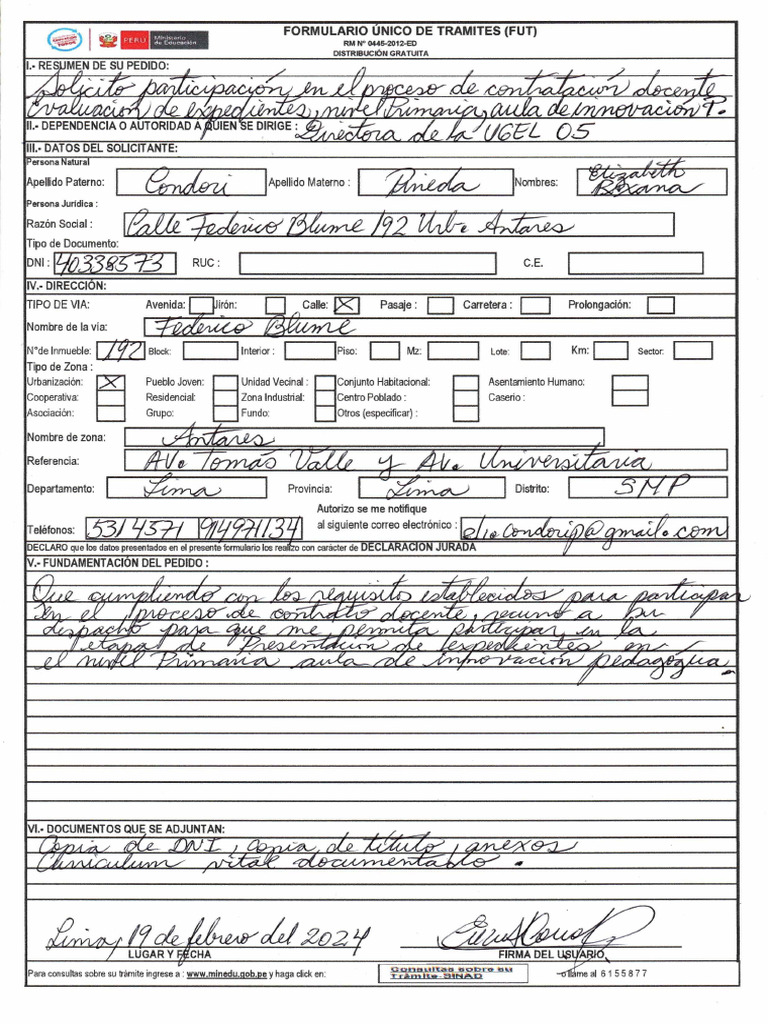 PERÚ Ministerio de Educación
FORMULARIO ÚNICO DE TRAMITES (FUT)
RM Nº 0445-2012-ED
DISTRIBUCIÓN GRATUITA
I.- RESUMEN DE SU PEDIDO:
Solicito participación en el proceso de contratación docente
Evaluación de expedientes, nivel Primaria, aula de innovación P.
II.- DEPENDENCIA O AUTORIDAD A QUIEN SE DIRIGE : Directora de la UGEL 05
III.- DATOS DEL SOLICITANTE:
Persona Natural
Apellido Paterno: Condori Apellido Materno : Pineda Nombres: Elizabeth Roxana
Persona Jurídica :
Razón Social : Calle Federico Blume 192 Urb. Antares
Tipo de Documento:
DNI : 40338573 RUC : C.E.
IV.- DIRECCIÓN:
TIPO DE VIA: Avenida: Jirón: Calle: X Pasaje : Carretera : Prolongación:
Nombre de la vía: Federico Blume
N°de Inmueble: 192 Block: Interior : Piso: Mz: Lote: Km: Sector:
Tipo de Zona :
Urbanización: X Pueblo Joven: Unidad Vecinal : Conjunto Habitacional: Asentamiento Humano:
Cooperativa: Residencial: Zona Industrial: Centro Poblado : Caserio :
Asociación: Grupo: Fundo: Otros (especificar) :
Nombre de zona: Antares
Referencia: AV. Tomás Valle y AV. Universitaria
Departamento: Lima Provincia: Lima Distrito: SMP
Autorizo se me notifique
Teléfonos: 5314371 914971134 al siguiente correo electrónico : elio.condorip@gmail.com
DECLARO que los datos presentados en el presente formulario los realizo con carácter de DECLARACION JURADA
V.- FUNDAMENTACIÓN DEL PEDIDO :
Que cumpliendo con los requisitos establecidos para participar
en el proceso de contrato docente, recurro a su
despacho para que me permita participar en la
etapa de Presentación de expedientes en
el nivel Primaria aula de innovación pedagógica.
VI.- DOCUMENTOS QUE SE ADJUNTAN:
Copia de DNI, copia de título, anexos
Curriculum vitae documentado.
Lima, 19 de febrero del 2024
LUGAR Y FECHA FIRMA DEL USUARIO
Para consultas sobre su trámite ingrese a : www.minedu.gob.pe y haga click en: Consultas sobre su Trámite-SINAD o llame al 6155877